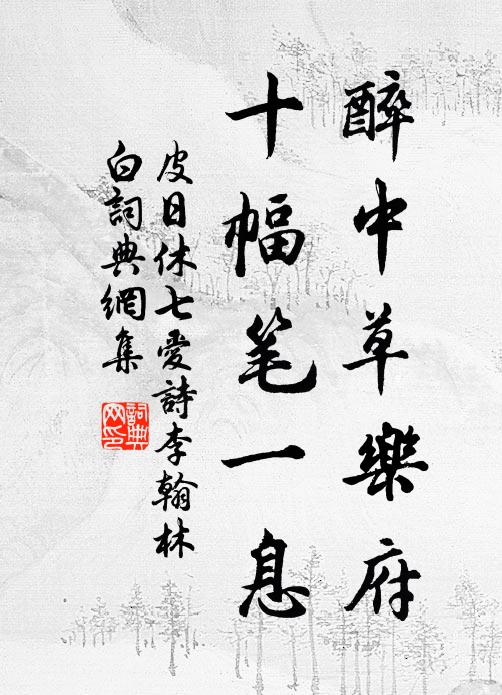 醉中草樂府
十幅笔一息
皮日休七愛詩李翰林
白詞典網集
詞典网印